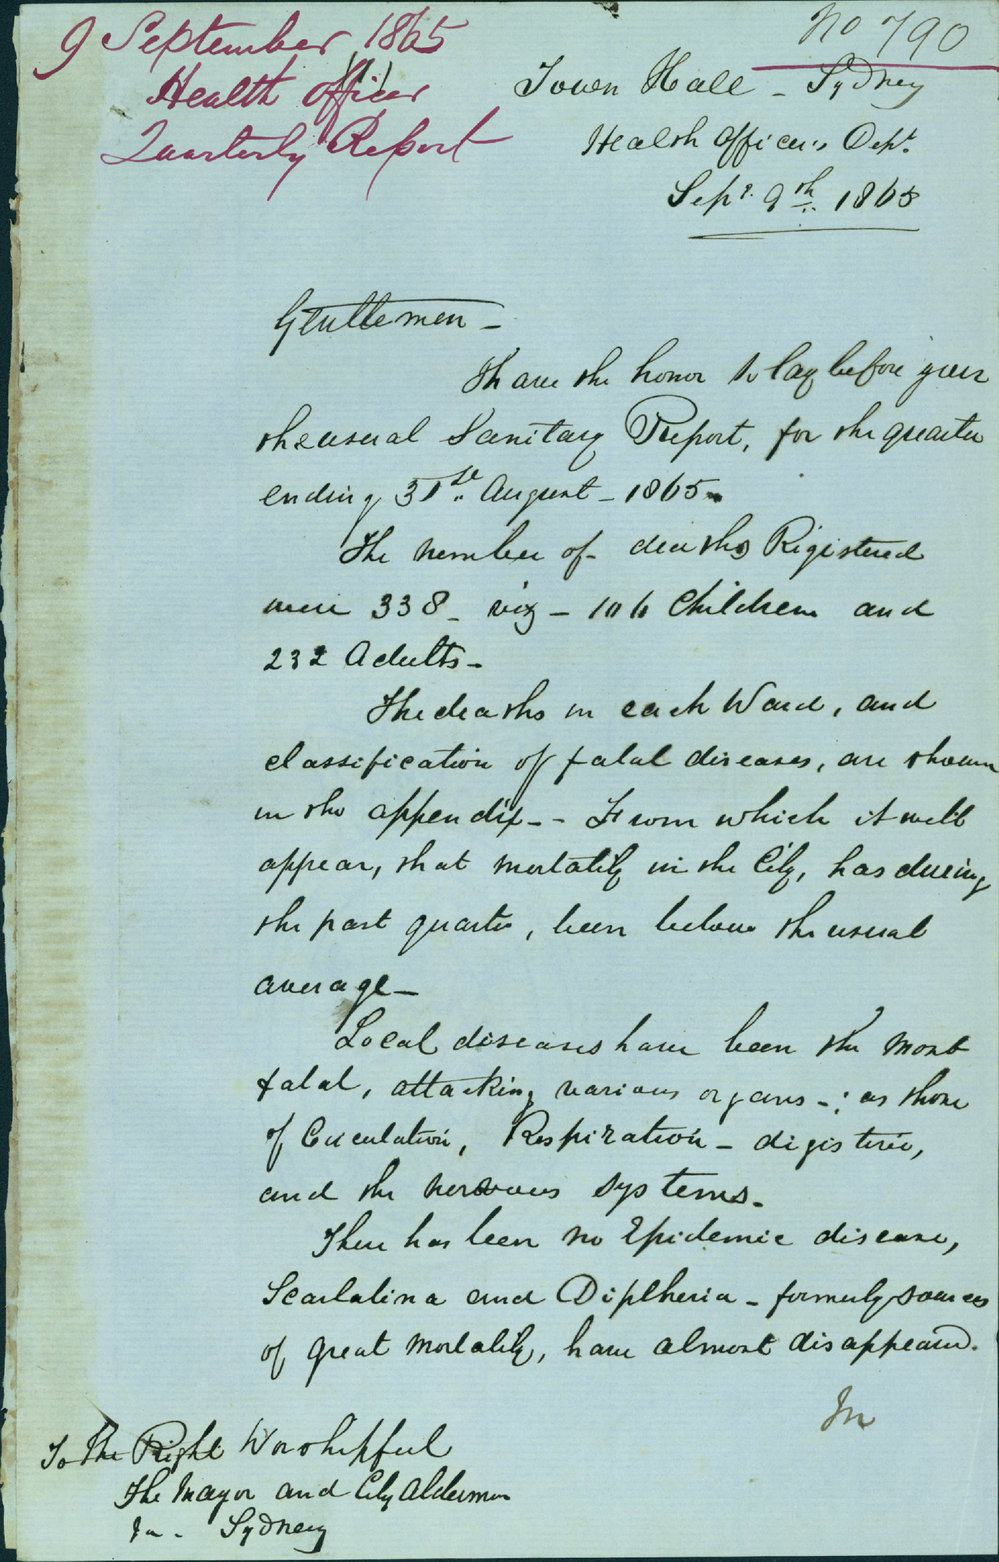 9 September 1865
Health Officer
Quarterly Report
No 790
Town Hall - Sydney
Health Officer's Dept.
Sept. 9th 1865
Gentlemen -
I have the honor to lay before your
the usual Sanitary Report, for the quarter
ending 31st August - 1865.
The number of deaths Registered
were 338 - viz - 106 Children and
232 Adults -
The deaths in each Ward, and
classification of fatal diseases, are shown
in the appendix - - From which it will
appear, that mortality in the City, has during
the past quarter, been below the usual
average -
Local diseases have been the most
fatal, attacking various organs - : as those
of Circulation, Respiration - digestion,
and the nervous systems -
There has been no Epidemic disease,
Scarlatina and Diptheria - formerly sources
of great mortality, have almost disappeared.
In
To The Right Worshipful
The Mayor and City Aldermen
Sydney